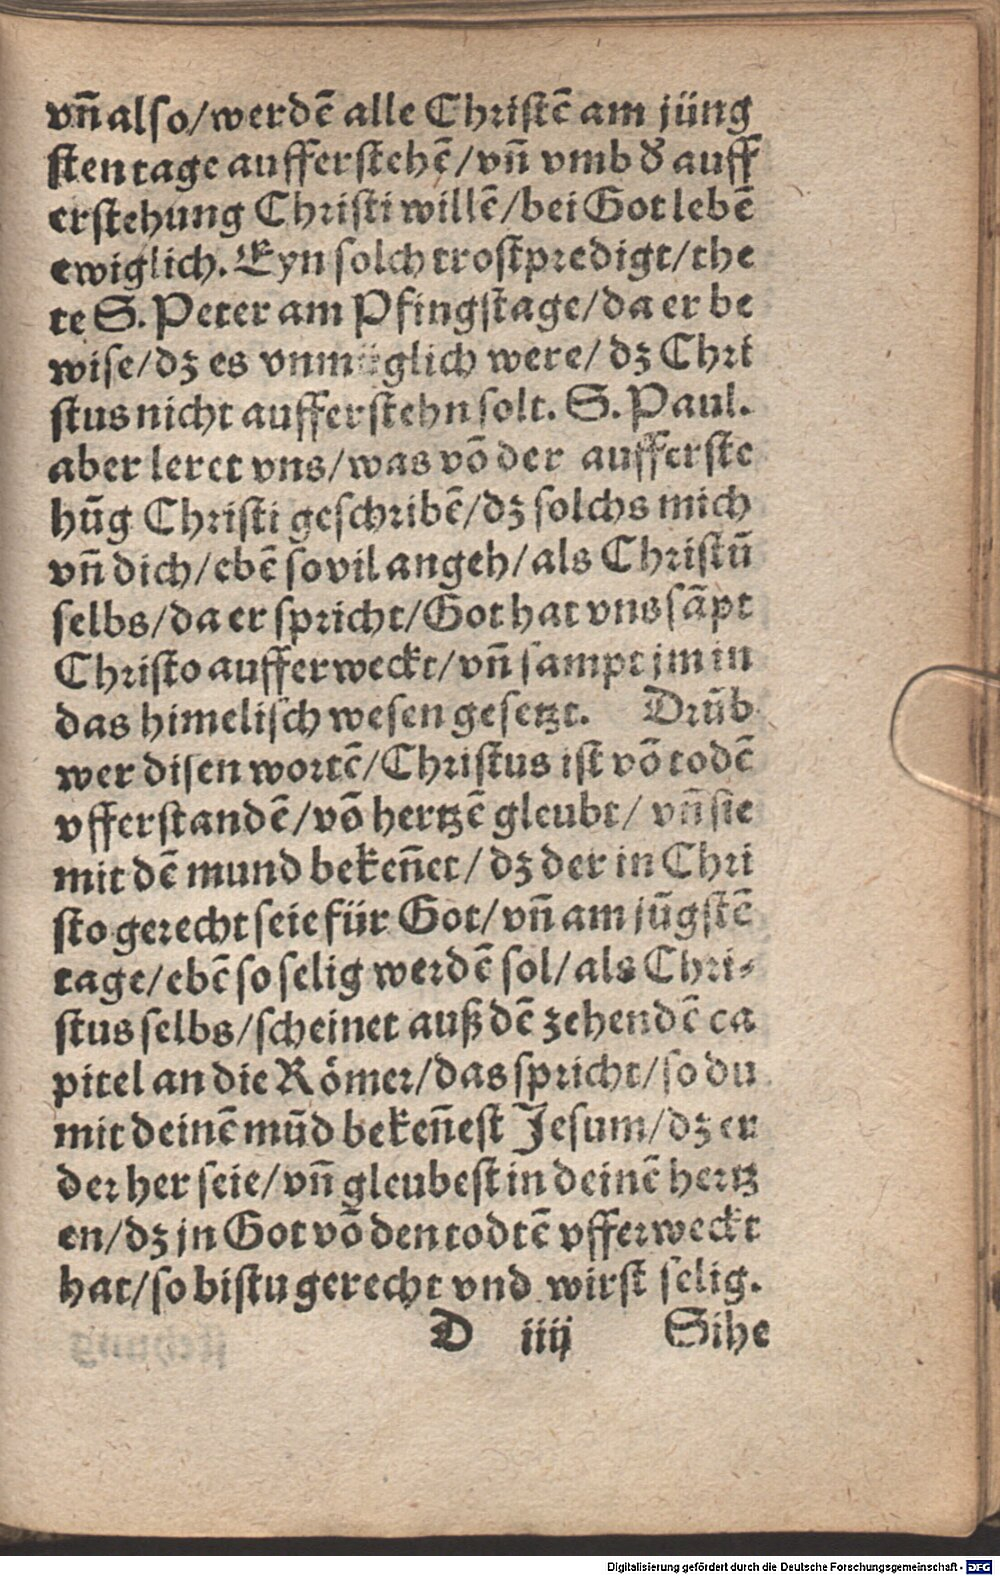 vn̄ also/werdē alle Christē am jüng
sten tage aufferstehē/vn̄ vmb d̕ auff
erstehung Christi willē/bei Got lebē
ewiglich. Eyn solch trostpredigt/the
te S. Peter am Pfingstage/da er be
wise/dz es vnmüglich were/dz Chri
stus nicht aufferstehn solt. S. Paul.
aber leret vns/was vō der aufferste
hūg Christi geschribē/dz solchs mich
vn̄ dich/ebē so vil angeh/als Christū
selbs/da er spricht/Got hat vns sāpt
Christo aufferweckt/vn̄ sampt jm in
das himelisch wesen gesetzt. Drüb
wer disen wortē/Christus ist vō todē
vfferstandē/vō hertzē gleubt/vn̄ sie
mit dē mund beken̄et/dz der in Chri
sto gerecht seie für Got/vn̄ am jūgstē
tage/ebē so selig werdē sol/als Chri-
stus selbs/scheinet auß dē zehendē ca
pitel an die Römer/das spricht/so du
mit deinē mūd beken̄est Jesum/dz er
der her seie/vn̄ gleubest in deinē hertz
en/dz jn Got vō den todtē vfferweckt
hat/so bistu gerecht vnd wirst selig.
D iiij Sihe
Digitalisierung gefördert durch die Deutsche Forschungsgemeinschaft - DFG